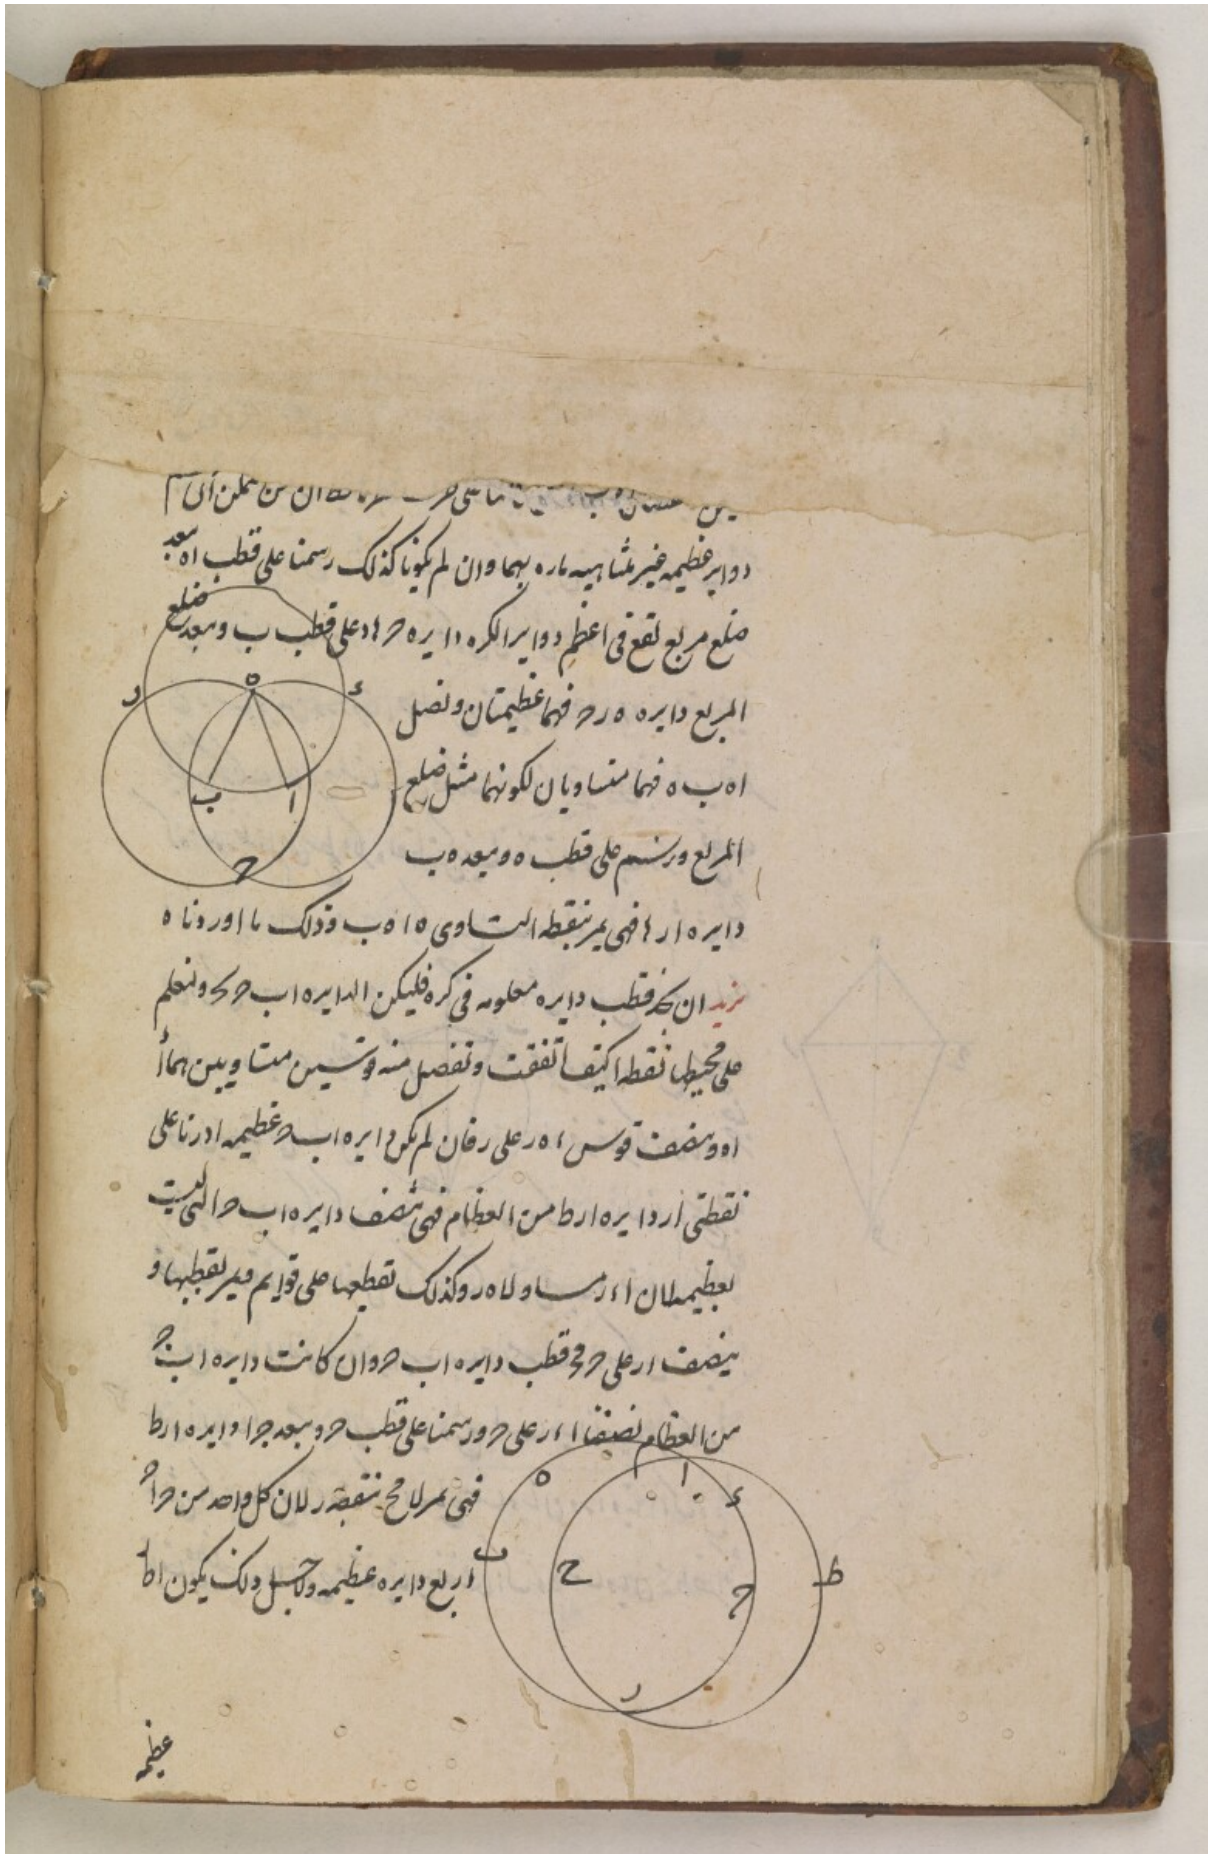 دواير عظيمه غير متناهيه ماره بهما وان لم يكونا كذلك رسمنا على قطب ا و ببعد
ضلع مربع تقع فى اعظم دواير الكره دايره ح ه د على قطب ب وببعد ضلع
المربع دايره ه ر ح فهما عظيمتان ونصل
ا ه ب ه فهما متساويان لكونهما مثل ضلع
المربع ورسم على قطب ه وببعد ه ب
دايره فهى يمر بنقطه ا لتساوى ه ا ه ب وذلك ما اوردناه
نريد ان نجد قطب دايره معلومه فى كره فليكن الدايره ا ب ح د ونعلم
على محيطها نقطه ا كيف اتفقت ونفصل منه قوسين متساويين هما ا د
ا ه وننصف قوس د ه ر على ر فان لم يكن دايره ا ب ح عظيمه ادرنا على
نقطتى ا ر دايره ا ر ط من العظام فهى تنصف دايره ا ب ح التى ليست
بعظيمه لان ا د ر مساو لـ ا ه ر وكذلك تقطعها على قوايم ويمر بقطبيها و
ينصف ا ر على ح فح قطب دايره ا ب ح وان كانت دايره ا ب ح
من العظام نصفنا ا د ر على ح ورسمنا على قطب ح وببعد ح ا دايره ا ر ط
فهى يمر لا مح بنقطه ر لان كل واحد من ح ا ح
ر ربع دايره عظيمه ولاجل ذلك يكون ا ط
عظيمه
ر
ه
د
ب
ا
ح
ه
ا
د
ب
ح
ح
ط
ر